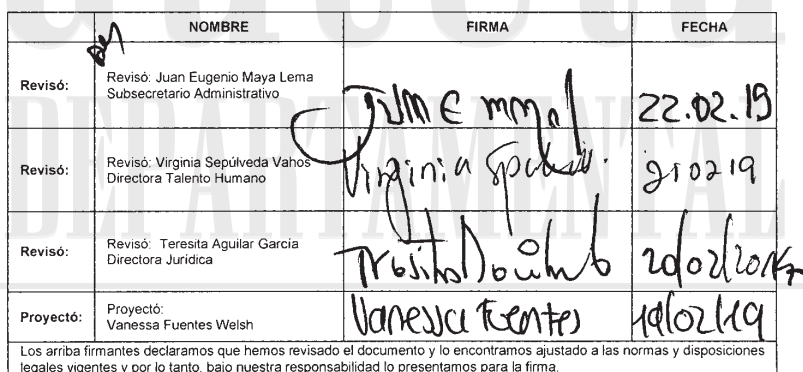 NOMBRE FIRMA FECHA
Revisó: Revisó: Juan Eugenio Maya Lema
Subsecretario Administrativo
22.02.19
Revisó: Revisó: Virginia Sepúlveda Vahos
Directora Talento Humano
Virginia
210219
Revisó: Revisó: Teresita Aguilar García
Directora Jurídica
Proyectó: Proyectó:
Vanessa Fuentes Welsh
Vanessa Fuentes 19/02/19
Los arriba firmantes declaramos que hemos revisado el documento y lo encontramos ajustado a las normas y disposiciones
legales vigentes y por lo tanto, bajo nuestra responsabilidad lo presentamos para la firma.
DEPARTAMENTAL